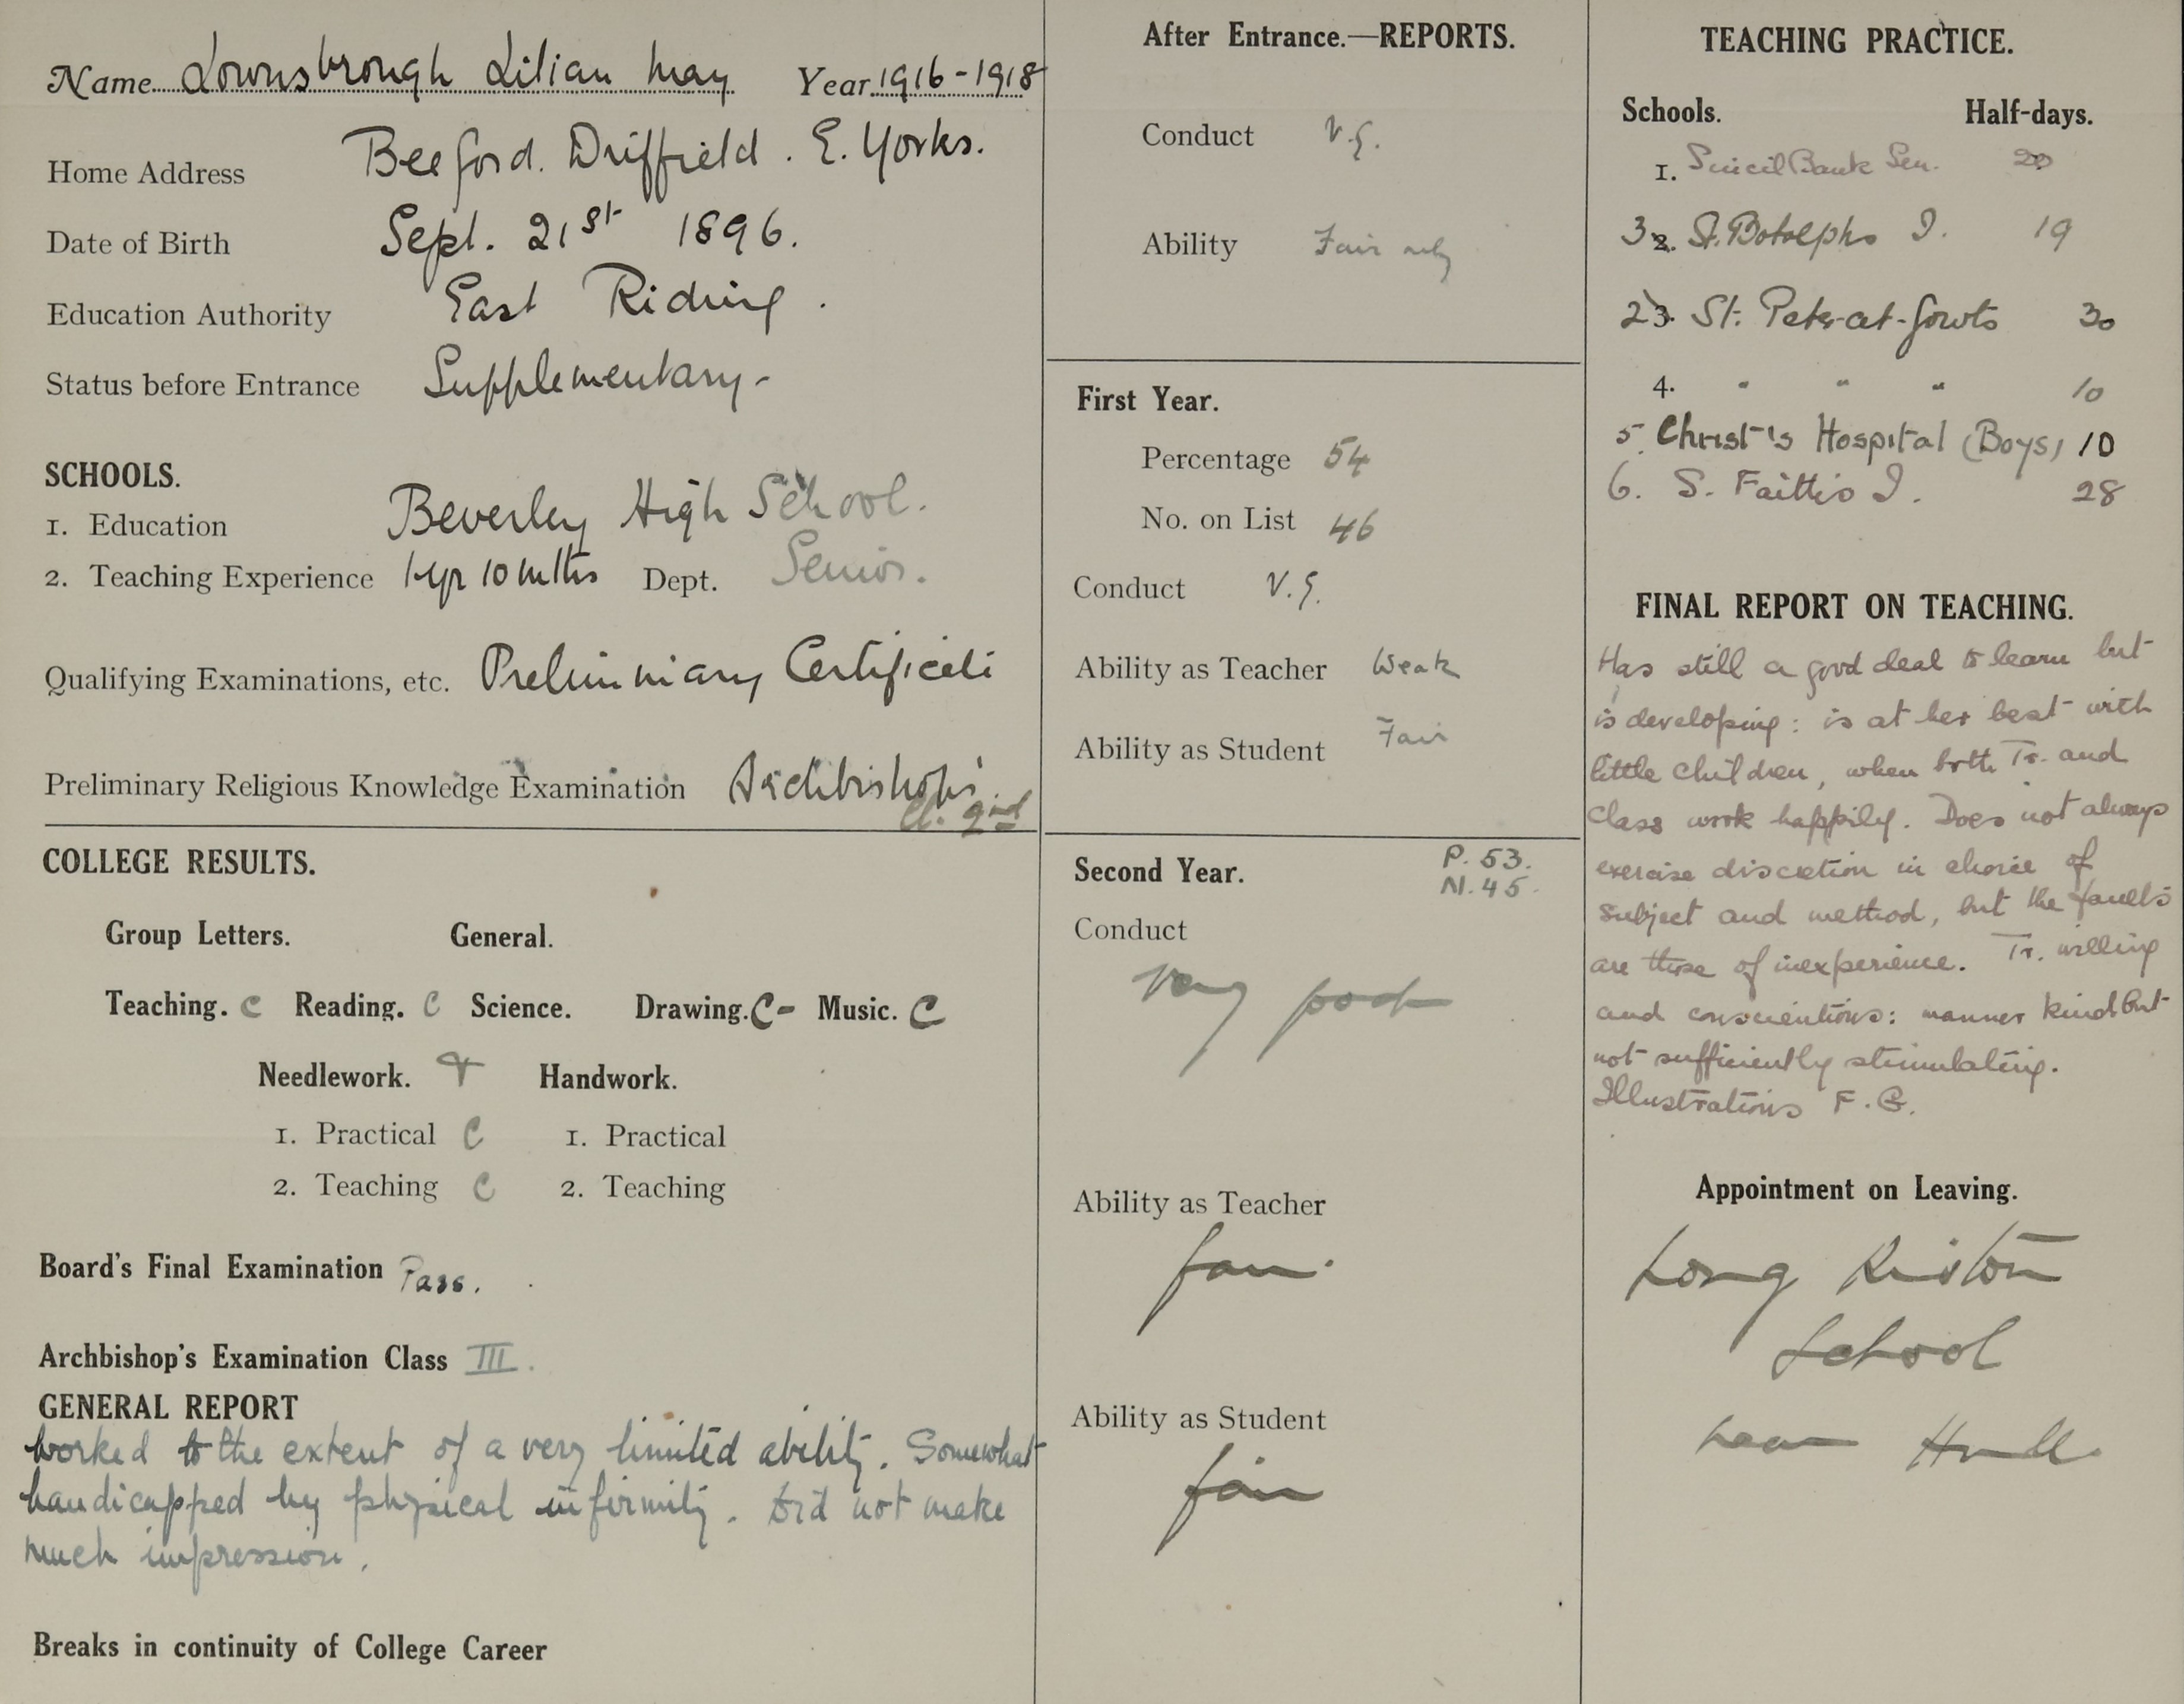 Name Lownsbrough Lilian May Year 1916-1918
Home Address Beeford. Driffield. E. Yorks.
Date of Birth Sept. 21st 1896.
Education Authority East Riding.
Status before Entrance Supplementary-
SCHOOLS.
1. Education Beverley High School.
2. Teaching Experience 1 yr 10 mths Dept. Senior.
Qualifying Examinations, etc. Preliminary Certificate
Preliminary Religious Knowledge Examination Archbishop's.
Cl. 2nd
COLLEGE RESULTS.
Group Letters. General.
Teaching. C Reading. C Science. Drawing. C- Music. C
Needlework. Handwork.
1. Practical C 1. Practical
2. Teaching C 2. Teaching
Board's Final Examination Pass.
Archbishop's Examination Class III.
GENERAL REPORT
Worked to the extent of a very limited ability. Somewhat
handicapped by physical infirmity. Did not make
much impression.
Breaks in continuity of College Career
After Entrance.—REPORTS.
Conduct V.G.
Ability Fair only
First Year.
Percentage 54
No. on List 46
Conduct V.G.
Ability as Teacher Weak
Ability as Student Fair
Second Year. P. 53.
N. 45.
Conduct
Very good
Ability as Teacher
fair.
Ability as Student
fair
TEACHING PRACTICE.
Schools. Half-days.
1. Sincil Bank Sen. 20
3 2. St. Botolphs I. 19
2 3. St. Peter-at-Gowts 30
4. " " " 10
5. Christ's Hospital (Boys) 10
6. S. Faith's I. 28
FINAL REPORT ON TEACHING.
Has still a good deal to learn but
is developing: is at her best with
little children, when both Tr. and
class work happily. Does not always
exercise discretion in choice of
subject and method, but the faults
are those of inexperience. Tr. willing
and conscientious: manner kind but
not sufficiently stimulating.
Illustrations F.G.
Appointment on Leaving.
Long Riston
School
near Hull